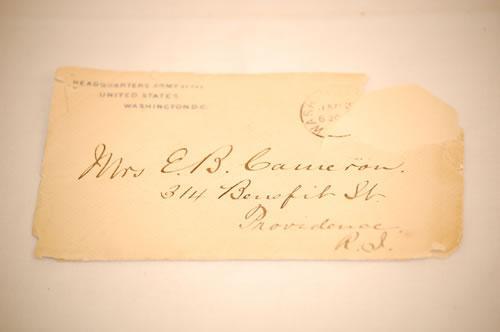 HEADQUARTERS ARMY OF THE
UNITED STATES
WASHINGTON D.C.
WASH
JAN
6 30
Mrs E. B. Cameron.
314 Benefit St.
Providence
R. I.